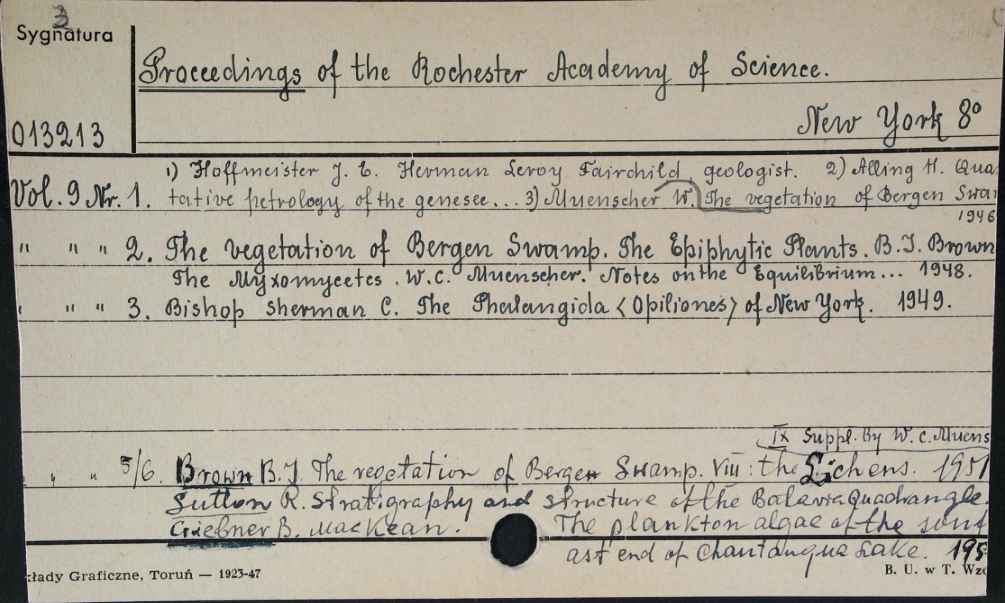 3
Sygnatura
Proceedings of the Rochester Academy of Science.
New York 8°
013213
1) Hoffmeister J. E. Herman Leroy Fairchild, geologist. 2) Alling H. Qua
Vol. 9 Nr. 1. tative petrology of the genesee... 3) Muenscher W. The vegetation of Bergen Swa
1946
" " " 2. The vegetation of Bergen Swamp. The Epiphytic Plants. B.J. Brown
The Myxomycetes. W.C. Muenscher. Notes on the Equilibrium... 1948.
" " " 3. Bishop Sherman C. The Phalangida <Opiliones> of New York. 1949.
IX Suppl. By W. C. Muens
" " 5/6. Brown B.J The vegetation of Bergen Swamp. VIII: the Lichens. 1951
Sutton R. Stratigraphy and structure of the Batavia Quadrangle.
B. MacKean. The plankton algae of the sout
ast end of Chautauqua Lake. 195
kłady Graficzne, Toruń — 1923-47
B. U. w T. Wzó